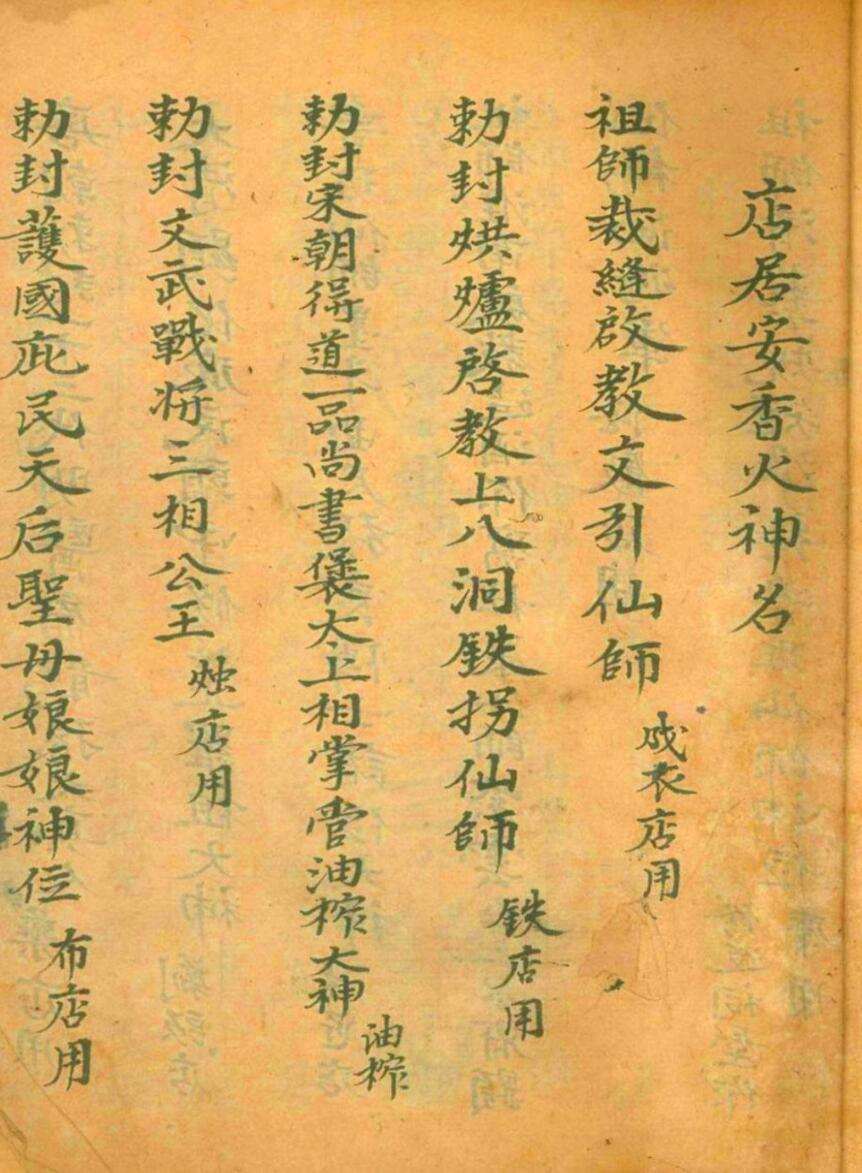 店居安香火神名
祖師裁縫啟教文引仙師 成衣店用
勅封烘爐啓教上八洞鉄拐仙師 鉄店用
勅封宋朝得道一品尚書褒太上相掌管油榨大神 油榨
勅封文武戰将三相公王 烛店用
勅封護國庇民天后聖母娘娘神位 布店用